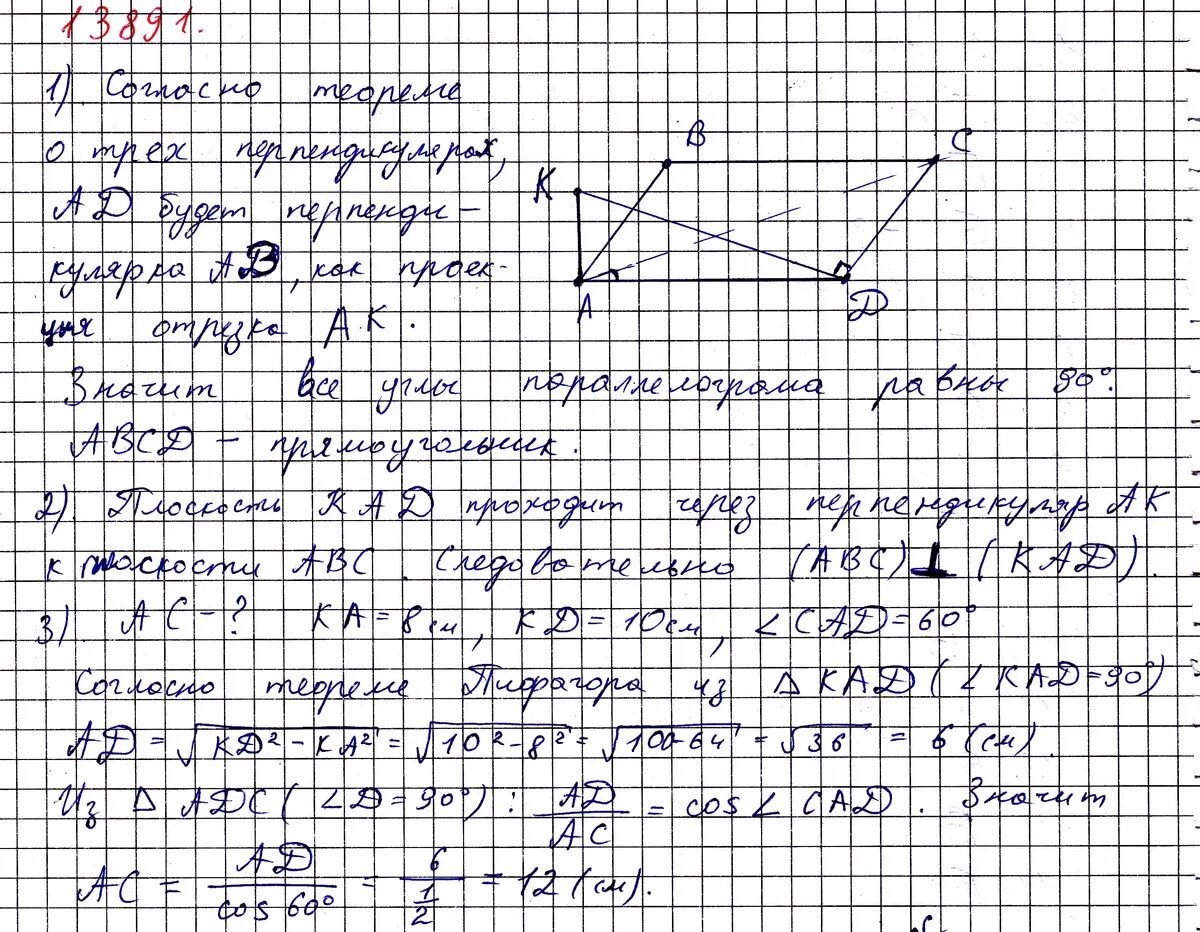 13891.
1) Согласно теореме
о трех перпендикулярах,
AD будет перпенди-
кулярна AB, как проек-
ция отрезка AK.
B
C
K
A
D
Значит все углы параллелограма равны 90°.
ABCD – прямоугольник.
2) Плоскость KAD проходит через перпендикуляр AK
к плоскости ABC. Следовательно (ABC) ⊥ (KAD).
3) AC - ? KA = 8 см, KD = 10 см, ∠CAD = 60°
Согласно теореме Пифагора из △ KAD (∠KAD = 90°)
AD = √(KD² - KA²) = √(10² - 8²) = √(100-64) = √36 = 6 (см).
Из △ ADC (∠D = 90°) : AD/AC = cos ∠ CAD. Значит
AC = AD/cos 60° = 6/(1/2) = 12 (см).